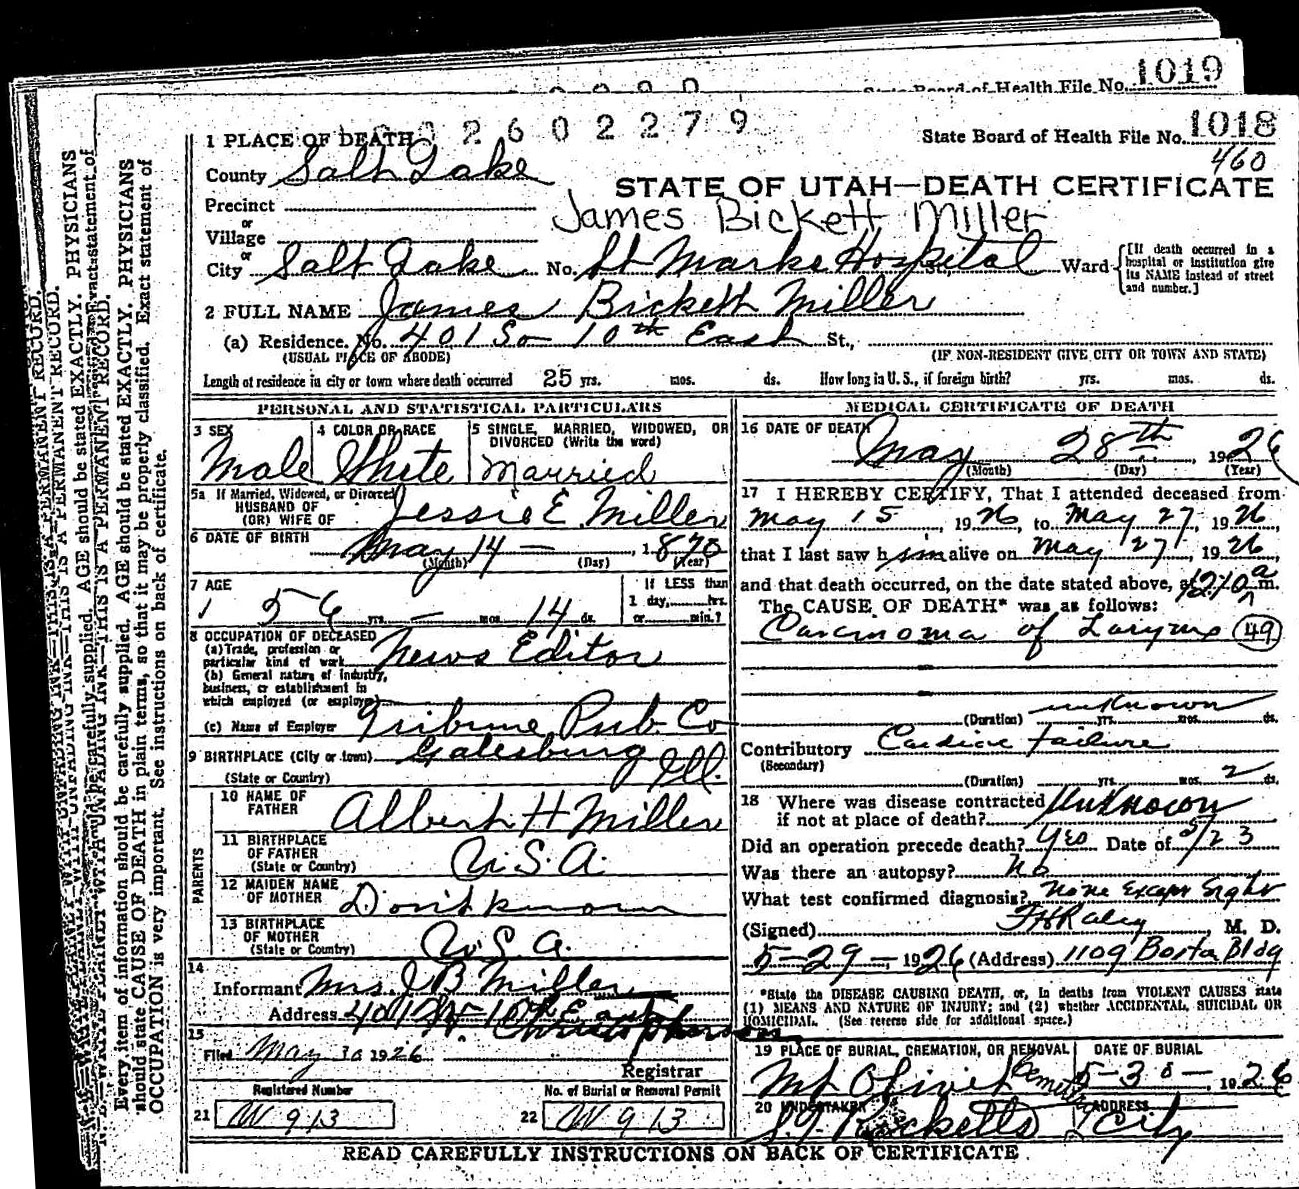 1019
State Board of Health File No.
2602279
1 PLACE OF DEATH
State Board of Health File No. 1018
460
County Salt Lake
STATE OF UTAH—DEATH CERTIFICATE
Precinct
James Bickett Miller
or
Village
or
City Salt Lake No. St Marks Hospital St., Ward
[If death occurred in a hospital or institution give its NAME instead of street and number.]
2 FULL NAME James Bickett Miller
(a) Residence. No. 401 So 10th East St.,
(USUAL PLACE OF ABODE) (IF NON-RESIDENT GIVE CITY OR TOWN AND STATE)
Length of residence in city or town where death occurred 25 yrs. mos. ds. How long in U. S., if foreign birth? yrs. mos. ds.
PERSONAL AND STATISTICAL PARTICULARS
3 SEX 4 COLOR OR RACE 5 SINGLE, MARRIED, WIDOWED, OR DIVORCED (Write the word)
Male White Married
5a If Married, Widowed, or Divorced
HUSBAND OF
(OR) WIFE OF Jessie E. Miller
6 DATE OF BIRTH May 14 — , 1870
(Month) (Day) (Year)
7 AGE If LESS than
56 yrs. — mos. 14 ds. 1 day, hrs.
or min.?
8 OCCUPATION OF DECEASED
(a) Trade, profession or
particular kind of work News Editor
(b) General nature of industry,
business, or establishment in
which employed (or employer)
(c) Name of Employer Tribune Pub. Co
9 BIRTHPLACE (City or town) Galesburg
(State or Country) Ill.
PARENTS
10 NAME OF
FATHER Albert H Miller
11 BIRTHPLACE
OF FATHER
(State or Country) U.S.A.
12 MAIDEN NAME
OF MOTHER Don't know
13 BIRTHPLACE
OF MOTHER
(State or Country) U.S.A.
14
Informant Mrs. J B Miller
Address 401
15
Filed May 30 1926
Registrar
Registered Number No. of Burial or Removal Permit
21 W 913 22 W 913
MEDICAL CERTIFICATE OF DEATH
16 DATE OF DEATH
May 28th , 1926
(Month) (Day) (Year)
17 I HEREBY CERTIFY, That I attended deceased from
May 15 , 1926, to May 27, 1926,
that I last saw him alive on May 27, 1926,
and that death occurred, on the date stated above, at 1210 a m.
The CAUSE OF DEATH* was as follows:
Carcinoma of Larynx 49
unknown
(Duration) yrs. mos. ds.
Contributory Cardiac Failure
(Secondary)
(Duration) yrs. mos. 2 ds.
18 Where was disease contracted
if not at place of death? Unknown
Did an operation precede death? Yes Date of 5/23
Was there an autopsy? No
What test confirmed diagnosis? None Except Sight
(Signed) M. D.
5-29-, 1926 (Address) 1109 Boston Bldg
*State the DISEASE CAUSING DEATH, or, in deaths from VIOLENT CAUSES state
(1) MEANS AND NATURE OF INJURY; and (2) whether ACCIDENTAL, SUICIDAL OR
HOMICIDAL. (See reverse side for additional space.)
19 PLACE OF BURIAL, CREMATION, OR REMOVAL DATE OF BURIAL
Mt Olivet Cemetery 5-30-, 1926
20 UNDERTAKER ADDRESS
Ricketts City
READ CAREFULLY INSTRUCTIONS ON BACK OF CERTIFICATE
N. B.—WRITE PLAINLY WITH UNFADING INK—THIS IS A PERMANENT RECORD.
Every item of information should be carefully supplied. AGE should be stated EXACTLY. PHYSICIANS
should state CAUSE OF DEATH in plain terms, so that it may be properly classified. Exact statement of
OCCUPATION is very important. See instructions on back of certificate.